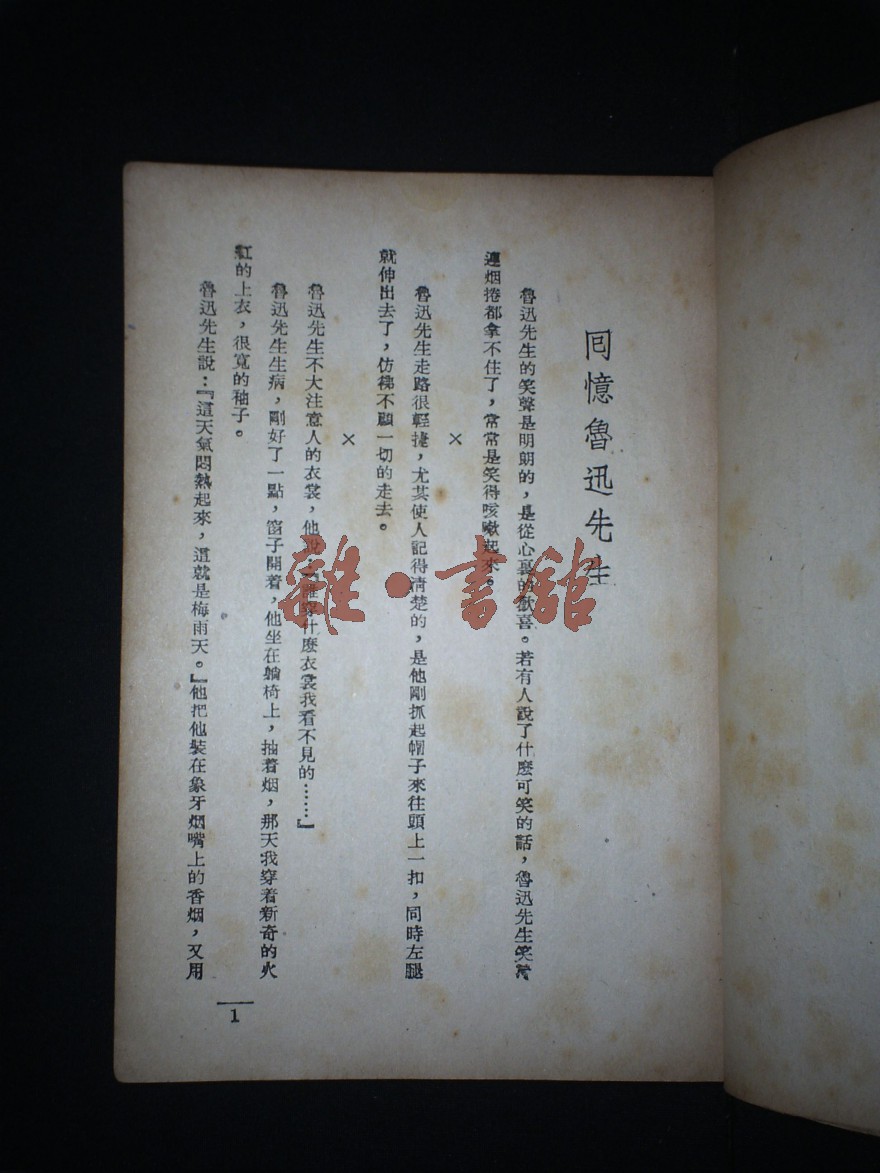 回憶魯迅先生
魯迅先生的笑聲是明朗的，是從心裏的歡喜。若有人說了什麽可笑的話，魯迅先生笑的
連烟捲都拿不住了，常常是笑得咳嗽起來。
×
魯迅先生走路很輕捷，尤其使人記得清楚的，是他剛抓起帽子來往頭上一扣，同時左腿
就伸出去了，仿彿不顧一切的走去。
×
魯迅先生不大注意人的衣裳，他說：『誰穿什麽衣裳我看不見的……』
魯迅先生生病，剛好了一點，窗子開着，他坐在躺椅上，抽着烟，那天我穿着新奇的火
紅的上衣，很寬的袖子。
魯迅先生說：『這天氣悶熱起來，這就是梅雨天。』他把他裝在象牙烟嘴上的香烟，又用
1
雜·書館